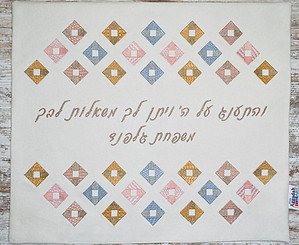 והתענג על ה' ויתן לך משאלות לבך
משפחת גלפנד